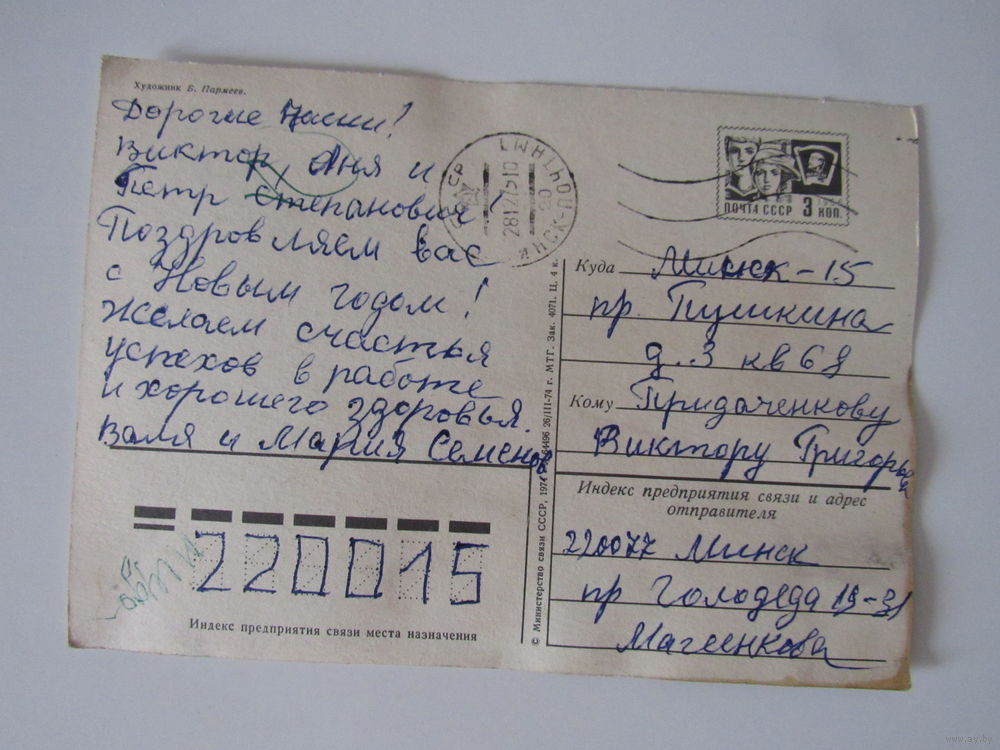 Художник Б. Пармеев.
Дорогие Наши!
Виктор, Аня и
Петр Степанович!
Поздровляем вас
с Новым годом!
Желаем счастья
успехов в работе
и хорошего здоровья.
Валя и Мария Семенов
28127510
20
ПОЧТА СССР 3 КОП.
Куда Минск-15
пр. Пушкина
д.3 кв 68
Кому Придаченкову
Виктору Григорьев
Индекс предприятия связи и адрес
отправителя
220077 Минск
пр Голодеда 19-31
Магеенкова
220015
Индекс предприятия связи места назначения
© Министерство связи СССР, 1974 26/III-74 г. МТГ. Зак. 4071. Ц. 4 к.
www.ay.by